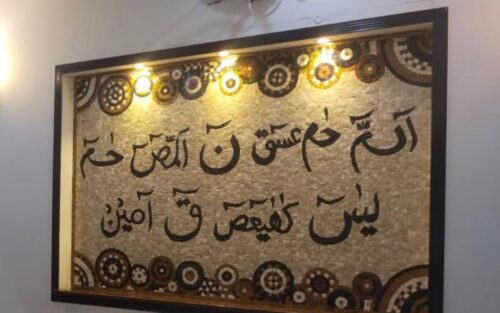 الٓمّٓ حٰمٓ عٓسٓقٓ نٓ الٓمّٓصٓ حٰمٓ
یٰسٓ کٓھٰیٰعٓصٓ قٓ آمین